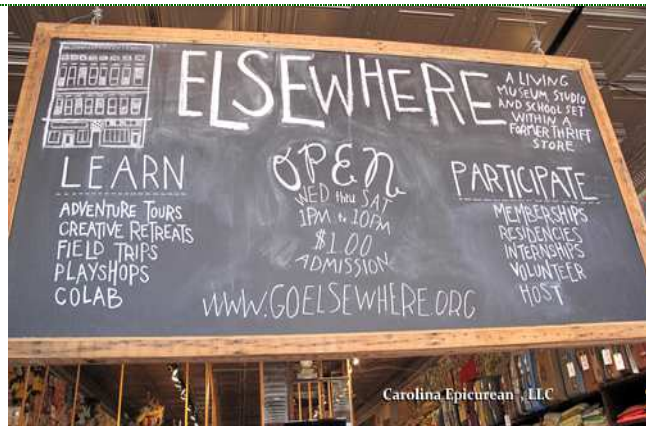 ELSEWHERE
A LIVING
MUSEUM, STUDIO
AND SCHOOL SET
WITHIN A
FORMER THRIFT
STORE
LEARN
ADVENTURE TOURS
CREATIVE RETREATS
FIELD TRIPS
PLAYSHOPS
COLAB
OPEN
WED thru SAT
1PM to 10PM
$1.00
ADMISSION
PARTICIPATE
MEMBERSHIPS
RESIDENCIES
INTERNSHIPS
VOLUNTEER
HOST
WWW.GOELSEWHERE.ORG
Carolina Epicurean, LLC